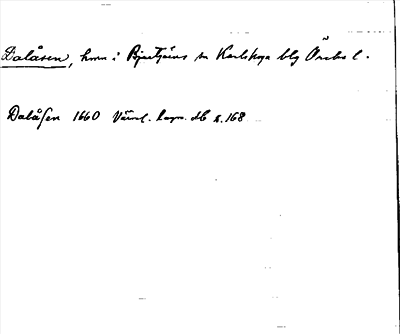 Dalåsen, hmn i Bjurtjärns sn Karlskoga blg Örebro l.
Dalåſen 1660 Värml. lagm. db s. 168